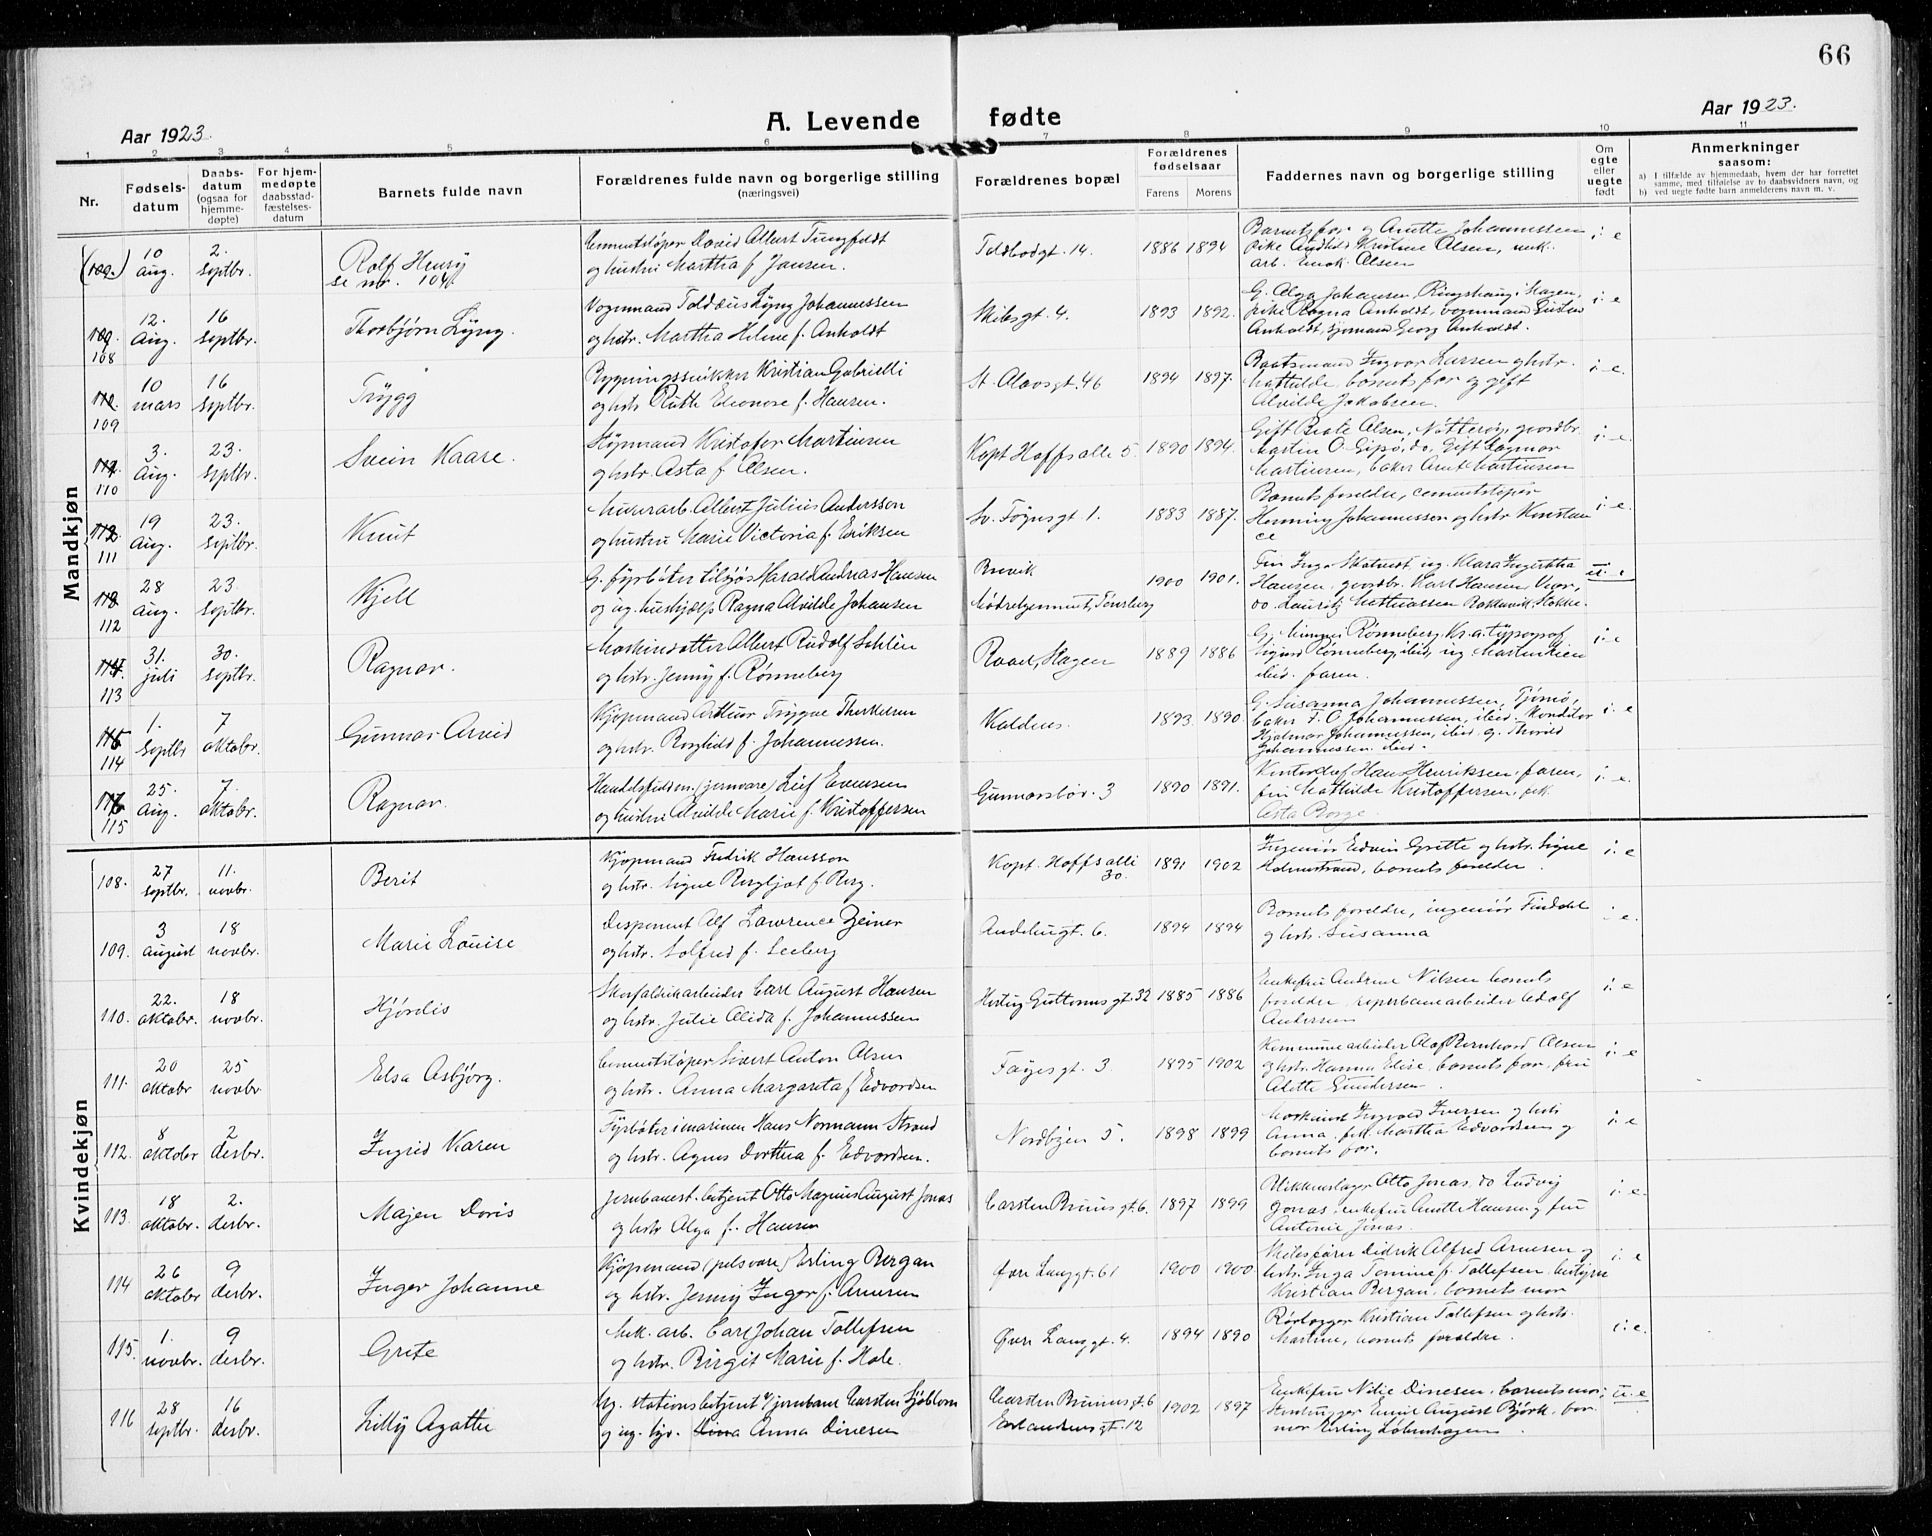 66
Aar 1923.
A. Levende fødte
Aar 1923.
1 2 3 4 5 6 7 8 9 10 11
Nr.
Fødsels-
datum
Daabs-
datum
(ogsaa for
hjemme-
døpte)
For hjem-
medøpte
daabsstad-
fæstelses-
datum
Barnets fulde navn
Forældrenes fulde navn og borgerlige stilling
(næringsvei)
Forældrenes bopæl
Forældrenes
fødselsaar
Farens Morens
Faddernes navn og borgerlige stilling
Om
egte
eller
uegte
født
Anmerkninger
saasom:
a) I tilfælde av hjemmedaab, hvem der har forrettet
samme, med tilføielse av to daabsvidners navn, og
b) ved uegte født barn anmelderens navn m. v.
Mandkjøn
(109.) 10 aug. 2. septbr. Rolf Henry
se nr. 104.
Cementstøper David Albert Tungfeldt
og hustru Martha f. Jansen.
Toldbodgt. 14. 1886 1894
Barnets far og Anette Johannessen
pike Andhild Kristine Olsen, mek.
arb. Enok Olsen
i. e
109. 108 12. Aug. 16 septbr. Thorbjørn Lyng.
Vognmand Toldæus Lyng Johannessen
og hstr. Martha Helene f. Anholdt
Stibsgt. 4. 1893 1892.
G. Olga Johansen, Ringshaug i Slagen,
pike Ragna Anholdt, vognmand Gustav
Anholdt, sjømand Georg Anholdt.
i. e
110. 109 10 mars 16 septbr. Trygg
Bygningssnikker Kristian Gabrielli
og hstr. Ruth Eleonore f. Hansen.
St. Olavsgt. 46 1894 1897.
Baatsmand Ingvar Larsen og hstr.
Mathilde, barnets far og gift
Alvilde Jakobsen.
i. e.
111. 110 3. Aug. 23. septbr. Svein Kaare.
Styrmand Kristofer Martinsen
og hstr. Asta f. Olsen.
Kapt. Hoffs alle 5. 1890 1894.
Gift Beate Olsen, Nøtterøy, gaardbr.
Martin O. Gipø, do, Gift Dagmar
Martinsen, baker Arnt Martinsen
i. e.
112 111 19 Aug. 23. septbr. Knut
Murerarb. Albert Julius Andersson
og hustru Marie Victoria f. Eriksen
Sv. Føynsgt 1. 1883 1887.
Barnets foreldre, cementstøper
Henning Johannessen og hstr. Konstan
ce
i. e.
113 112 28 aug. 23. septbr. Kjell
G. fyrbøter tilsjøs Harald Andreas Hansen
og ug. hushjelp Ragna Alvilde Johansen
Brevik
Mødrehjemmet, Tønsberg
1900 1901.
Hansen, gaardbr. Karl Hansen,
do. Lauritz Mathiassen Stokke.
u. e
114. 113 31. juli 30. septbr. Ragnar.
Maskinsetter Albert Rudolf Sohlin
og hstr. Jenny f. Rønneberg
Raael, Slagen 1889 1886
G. Mimmi Rønneberg, Kr.a. typograf
Sigurd Rønneberg, ibid,
ibid. faren.
i. e
115 114 1. septbr 7 oktobr. Gunnar Arvid
Kjøpmand Arthur Trygve Therkelsen
og hstr. Borghild f. Johannessen.
Kaldnes. 1893. 1890.
G. Susanna Johannessen, Tjømø,
baker F. O. Johannessen, ibid. Konditor
Hjalmar Johannessen, ibid, g. Thorald
Johannessen ibid.
i. e
116 115 25. Aug. 7. oktobr. Ragnar.
Handelsfuldm. (jernvare) Leif Evensen
og hustru Alvilde Marie f. Kristoffersen
Gunnarsbøv. 3 1890 1891.
Hans Henriksen, faren,
frk Mathilde Kristoffersen, frk.
Asta Borge.
i. e.
Kvindekjøn
108. 27 septbr. 11. novbr. Berit
Kjøpmand Fredrik Hansson
og hstr. Signe Bergljot f Berg.
Kapt. Hoffs alle 30. 1891 1902
Ingeniør Edvin Grette og hstr. Signe
Holmestrand, barnets foreldre.
i. e
109. 3 august 18 novbr. Marie Louise
Disponent Alf Lawrence Zeiner
og hstr. Solfred f. Seeberg
Andebugt. 6. 1894 1894
Barnets foreldre, ingeniør Finddal
og hstr. Susanna
i. e.
110. 22. oktobr. 18 novbr. Hjørdis
Skofabrikarbeider Carl August Hansen
og hstr. Julie Alida f. Johannessen
Hertug Guttormsgt. 32 1885 1886
Enkefru Andrine Nilsen barnets
foreldre, reperbanearbeider Adolf
Andersen
i. e
111. 20 oktobr 25 novbr. Elsa Asbjørg.
Cementstøper Sivert Anton Olsen
og hstr. Anna Margareta f Edvardsen
Føyesgt. 3 1895 1902
Kommunearbeider Olaf Bernhard Olsen
og hstr. Hanna Elise, barnets far, fru
Adette Gundersen.
i. e
112. 8 oktober 2 desbr. Ingrid Karen
Fyrbøter i marinen Hans Normann Strand
og hstr. Agnes Dorthea f. Edvardsen.
Nordbyen 5. 1898 1899
Maskinist Ingvald Iversen og hstr
Anna, frk. Martha Edvardsen og
barnets far.
i. e
113. 18 oktobr. 2. desbr. Majen Doris
Jernbanest. betjent Otto Magnus August Jonas
og hstr. Olga f. Hansen
Carsten Bruunsgt. 6. 1897 1899
Blikkenslager Otto Jonas, do Ludvig
Jonas, enkefru Anette Hansen og fru
Antonie Jonas.
i. e.
114 26 oktobr 9 desbr. Inger Johanne
Kjøpmand (pelsvare) Erling Bergan
og hstr. Jenny Inger f. Arnesen
Øvre Langgt. 61 1900 1900
Didrik Alfred Arnesen og
hstr. Inga Tomine f. Tollefsen, bestyrer
Kristian Bergan, barnets mor
i. e
115. 1. novbr. 9 desbr. Grete
Mek. arb. Carl Johan Tollefsen
og hstr. Birgit Marie f. Hole.
Øvre Langgt. 4. 1894 1890
Rørlegger Kristian Tollefsen og hstr.
Martine, barnets foreldre.
i. e.
116 28 septbr. 16 desbr. Lilly Agathe
Ug. stationsbetjent v/ jernbane Carsten Sjöblom
og ug. syr. Dina Anna Dinesen
Carsten Bruunsgt. 6
Erlandsensgt. 12
1902 1897
Enkefru Nilie Dinesen, barnets mor,
Stenhugger Emil August Bjørk, bar
u. e